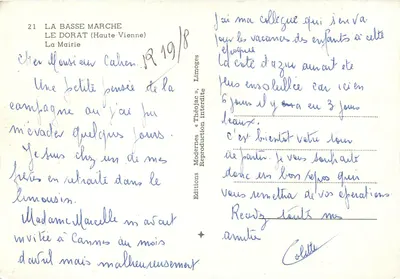 21 LA BASSE MARCHE
LE DORAT (Haute Vienne)
La Mairie
R 19/8
Cher Monsieur Cahen.
Une petite pensée de la
campagne ou j'ai pu
m'évader quelques jours.
Je suis chez un de mes
frères en retraite dans le
limousin.
Madame Marcelle m'avait
invitée à Cannes au mois
d'avril mais malheureusement
Editions Modernes « Théojac », Limoges
Reproduction interdite
j'ai ma collègue qui s'en va
pour les vacances des enfants à cette
époque
La cote d'azur aurait été
plus ensoleillée car ici en
6 jours il y en a eu 3 jours
d'eaux.
C'est bientôt votre tour
de partir. Je vous souhaite
donc un bon repos qui
vous remettra de vos opérations
Recevez toutes mes
amitiés
Colette